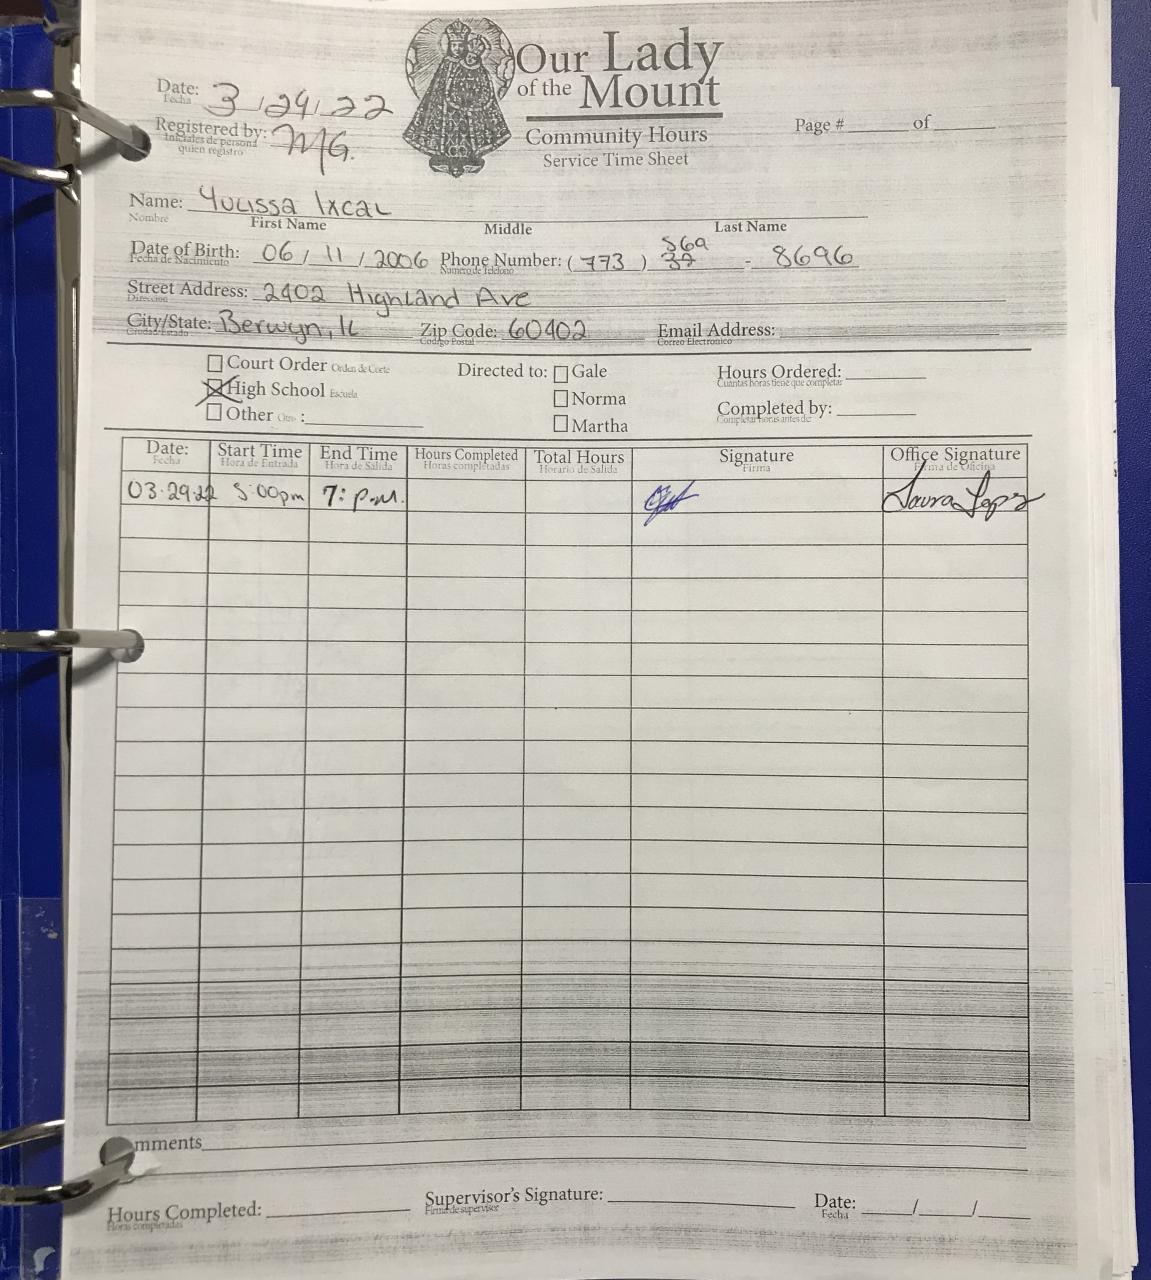 Our Lady
of the Mount
Community Hours
Service Time Sheet
Date: 3/29/22
Fecha
Registered by: MG.
Iniciales de persona
quien registro
Page # ______ of ______
Name: Yulissa Ixcal
Nombre First Name Middle Last Name
569
Date of Birth: 06/11/2006 Phone Number: (773) 37 - 8696
Fecha de Nacimiento Numero de Telefono
Street Address: 2402 Highland Ave
Direccion
City/State: Berwyn, IL Zip Code: 60402 Email Address:
Ciudad/Estado Codigo Postal Correo Electronico
Court Order Orden de Corte Directed to: Gale Hours Ordered:
Cuantas horas tiene que completar
High School Escuela Norma Completed by:
Completar horas antes de:
Other Otro : Martha
Date: Start Time End Time Hours Completed Total Hours Signature Office Signature
Fecha Hora de Entrada Hora de Salida Horas completadas Horario de Salida Firma Firma de Oficina
03.29.22 5:00pm 7: p.m. Laura Lopez
mments
Hours Completed: Supervisor's Signature: Date: / /
Horas completadas Firma de supervisor Fecha